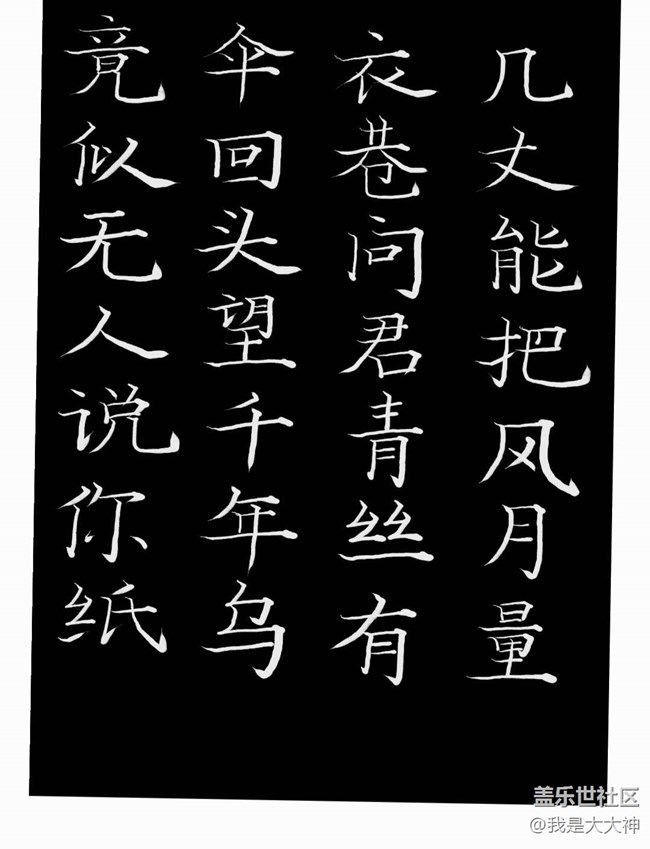 竟似无人说你纸
伞回头望千年乌
衣巷问君青丝有
几丈能把风月量
盖乐世社区
@我是大大神